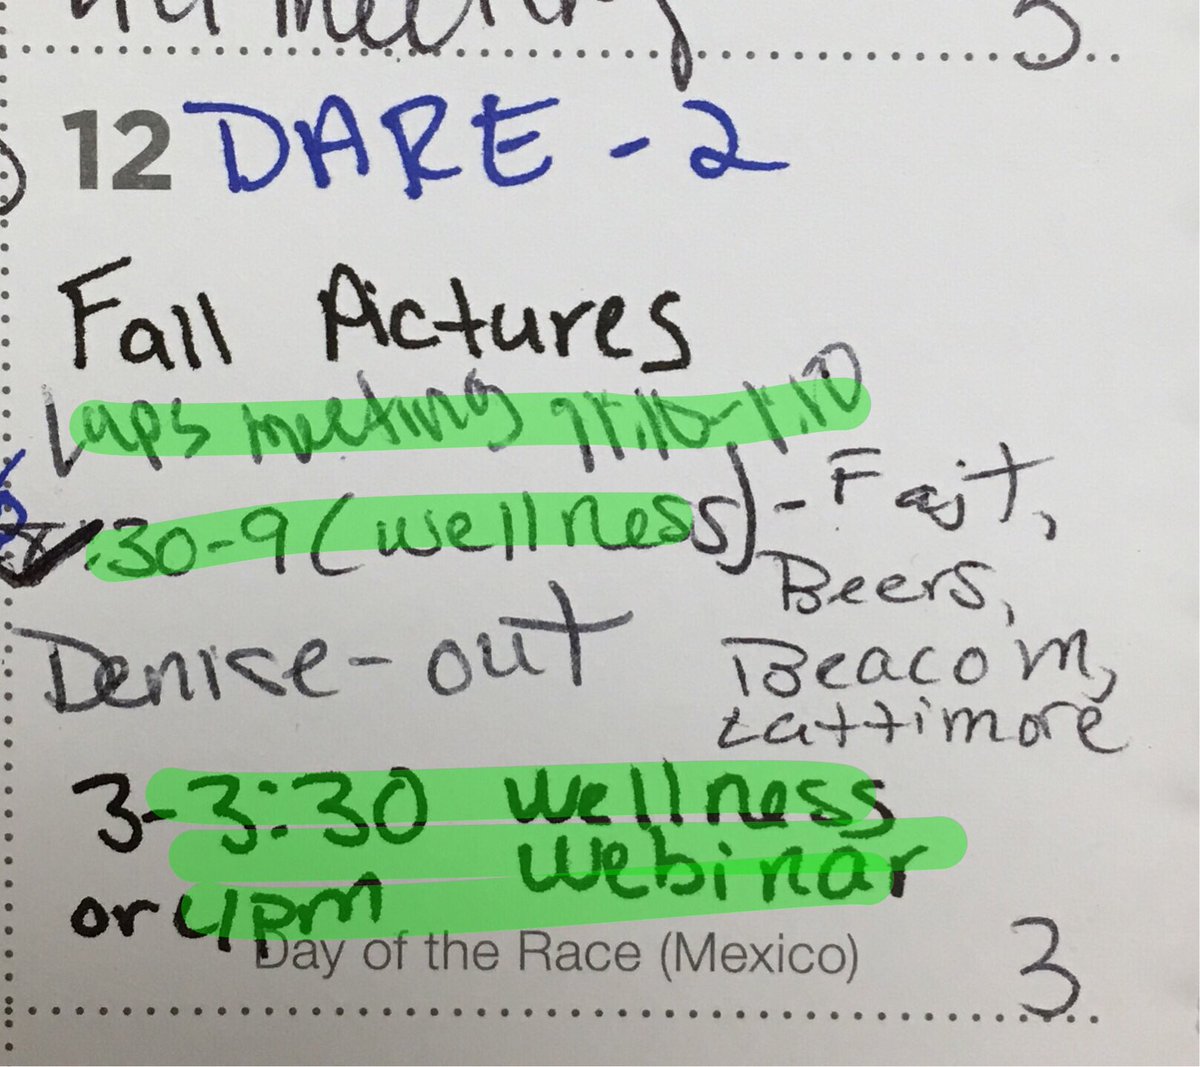 meeting 3
12 DARE - 2
Fall Pictures
Laps meeting
:30-9 (wellness) - Fajt,
Beers,
Denise - out
Beacom,
Lattimore
3-3:30 wellness
webinar
or 4pm
Day of the Race (Mexico) 3